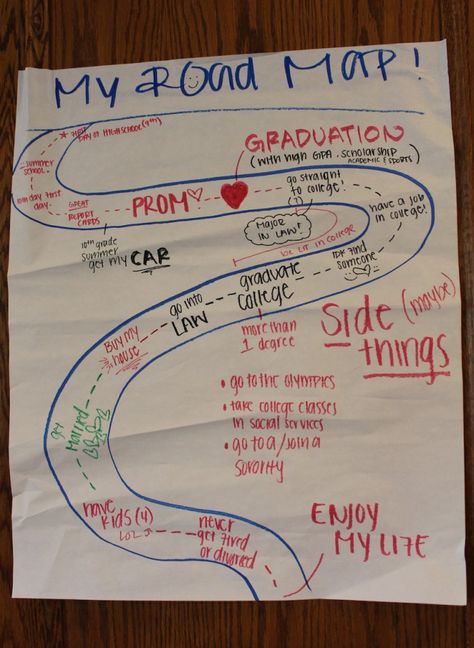 MY ROAD MAP!
DAY OF HIGH SCHOOL (9th)
summer
school
10th day first
day
GREAT
REPORT
CARDS
10th grade
summer
get my CAR
PROM
GRADUATION
(with high GPA, scholarship
ACADEMIC & SPORTS)
go straight
to college!
have a job
in college!
MAJOR
IN LAW?
BE LIT IN COLLEGE
IDK find
someone
graduate
college
more than
1 degree
go into
LAW
Buy my
house
get
Married
have
kids (4)
LOL JK
never
get fired
or divorced
ENJOY
MY LIFE
Side (maybe)
things
• go to the OLYMPICS
• take college classes
in social services
• go to a / join a
sorority